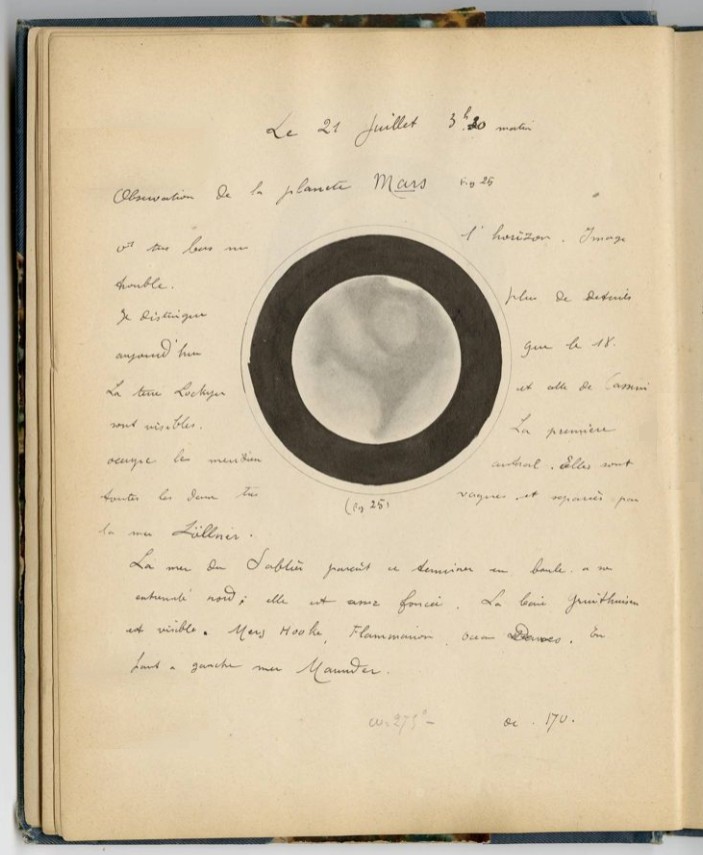 Le 21 Juillet 3h.20 matin
Observation de la planete Mars Fig 25
est tres bas sur l'horizon. Image
trouble.
Je distingue plus de details
aujourd'hui que le 18.
La terre Lockyer et celle de Cassini
sont visibles. La première
occupe le meridien austral. Elles sont
toutes les deux très vagues et separées par
la mer Zöllner.
(Fig 25)
La mer du Sablier parait se terminer en boule a son
extremité nord; elle est assez foncée. La baie Gruithuisen
est visible. Mers Hooke, Flammarion, ocean Dawes. En
haut a gauche mer Maunder.
ω=275°